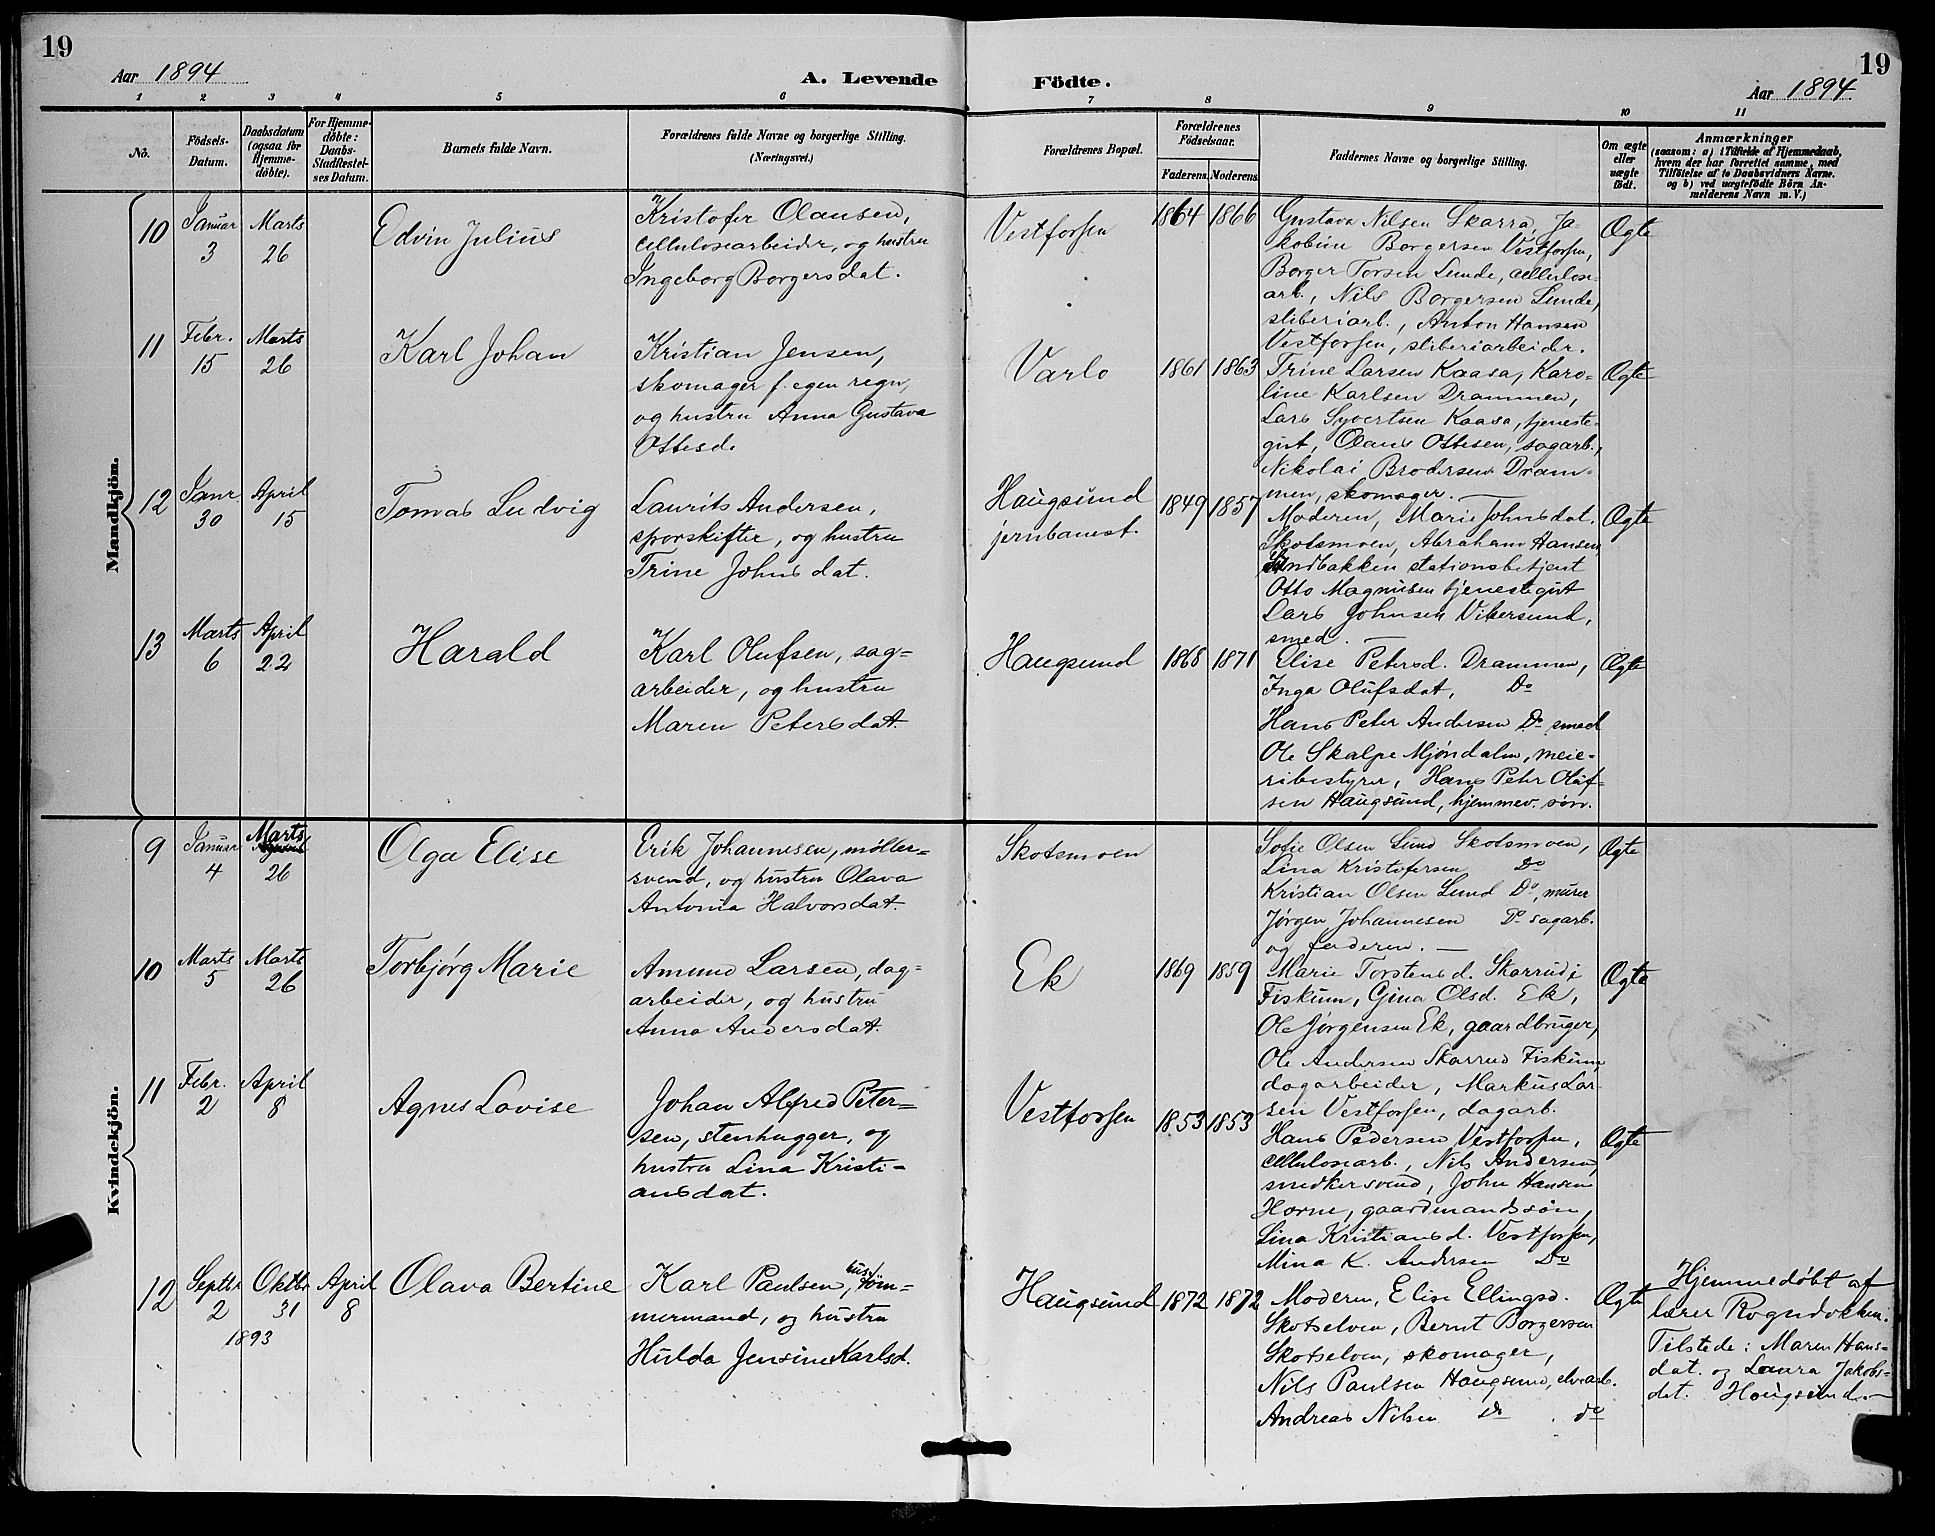 19
Aar 1894
A. Levende
Födte.
Aar 1894
19
1
2
3
4
5
6
7
8
9
10
11
No.
Födsels-
Datum.
Daabsdatum
(ogsaa for
Hjemme-
döbte).
For Hjemme-
döbte:
Daabs-
Stadfæstel-
ses Datum.
Barnets fulde Navn.
Forældrenes fulde Navne og borgerlige Stilling.
(Næringsvei.)
Forældrenes Bopæl.
Forældrenes
Födselsaar.
Faderens.
Moderens.
Faddernes Navne og borgerlige Stilling.
Om ægte
eller
uægte
födt.
Anmærkninger
(saasom: a) i Tilfælde af Hjemmedaab,
hvem der har forrettet samme, med
Tilföielse af to Daabsvidners Navne.
og b) ved uægtefödte Börn An-
melderens Navn m. V.)
Mandkjön.
10
Januar
3
Marts
26
Edvin Julius
Kristofer Olausen,
cellulosearbeider, og hustru
Ingeborg Borgersdat.
Vestfossen
1864
1866
Gustava Nilsen Skarra, Ja
kobine Borgersen Vestfossen,
Borger Torsen Lunde, cellulose-
arb., Nils Borgersen Lunde,
sliberiarb., Anton Hansen
Vestfossen, sliberiarbeider.
Ægte
11
Febr.
15
Marts
26
Karl Johan
Kristian Jensen,
skomager f. egen regn,
og hustru Anna Gustava
Ottesd.
Varlo
1861
1863
Trine Larsen Kaasa, Karo-
line Karlsen Drammen,
Lars Syvertsen Kaasa, tjeneste-
gut, Olaus Ottesen, sagarb.,
Nikolai Brodersen Dram-
men, skomager.
Ægte
12
Janr
30
April
15
Tomas Ludvig
Laurits Andersen,
sporskifter, og hustru
Trine Johnsdat.
Haugsund
jernbanest.
1849
1857
Moderen, Marie Johnsdat.
Skotsmoen, Abraham Hansen
Sandbakken stationsbetjent
Otto Magnusen tjenestegut
Lars Johnsen Vikersund,
smed.
Ægte
13
Marts
6
April
22
Harald
Karl Olufsen, sag-
arbeider, og hustru
Maren Petersdat.
Haugsund
1868
1871
Elise Petersd. Drammen,
Inga Olufsdat, Do
Hans Peter Andersen Do smed
Ole Skalpe Mjøndalen, meie-
ribestyrer, Hans Peter Oluf-
sen Haugsund, hjemmev. søn.
Ægte
Kvindekjön.
9
Januar
4
Marts
26
Olga Elise
Erik Johannesen, møller-
svend, og hustru Olava
Antonia Halvorsdat.
Skotsmoen
Sofie Olsen Lund Skotsmoen,
Lina Kristofersen Do
Kristian Olsen Lund Do, murer
Jørgen Johannesen Do sagarb.
og faderen.
Ægte
10
Marts
5
Marts
26
Torbjørg Marie
Amund Larsen, dag-
arbeider, og hustru
Anna Andersdat.
Ek
1869
1859
Marie Torstensd. Skarrud i
Fiskum, Gina Olsd. Ek,
Ole Jørgensen Ek, gaardbruger,
Ole Andersen Skarrud Fiskum,
dagarbeider, Markus Lar-
sen Vestfossen, dagarb.
Ægte
11
Febr.
2
April
8
Agnes Lovise
Johan Alfred Peter-
sen, stenhugger, og
hustru Lina Kristi-
ansdat.
Vestfossen
1853
1853
Hans Pedersen Vestfossen,
cellulosearb., Nils Andersen,
snedkersvend, John Hansen
Horne, gaardmandssøn,
Lina Kristiansd. Vestfossen,
Mina K. Andersen Do
Ægte
12
Septbr
2
Oktbr
31
1893
April
8
Olava Bertine
Karl Paulsen, hustøm-
mermand, og hustru
Hulda Jensine Karlsd.
Haugsund
1872
1872
Moderen, Elise Ellingsd.
Skotselven, Bernt Borgersen
Skotselven, skomager,
Nils Paulsen Haugsund, elvearb.
Andreas Nilsen Do do
Ægte
Hjemmedøbt af
lærer Rogndokken.
Tilstede: Maren Hans-
dat. og Laura Jakobs-
dat. Haugsund.